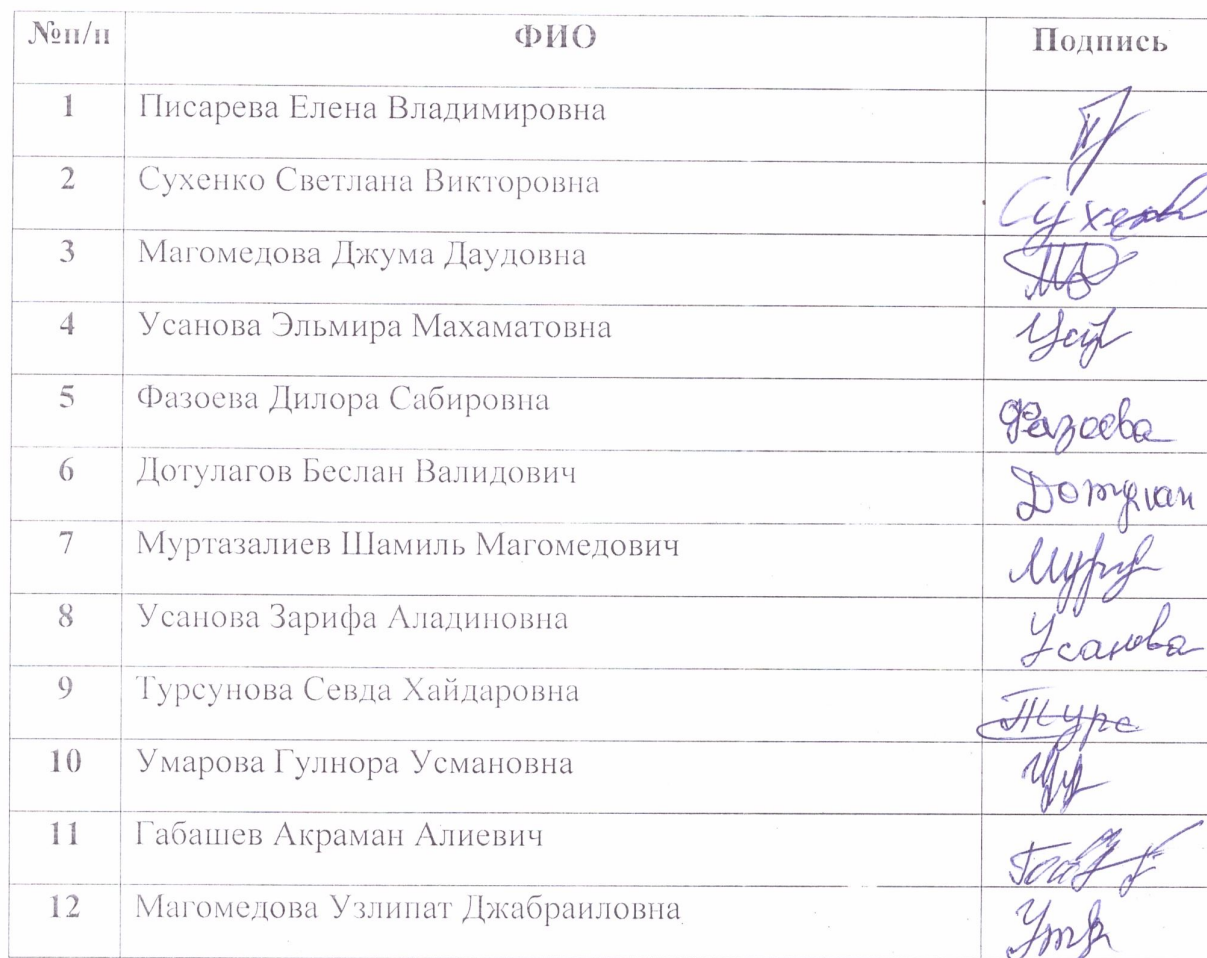 №п/п ФИО Подпись
1 Писарева Елена Владимировна
2 Сухенко Светлана Викторовна Сухен
3 Магомедова Джума Даудовна
4 Усанова Эльмира Махаматовна
5 Фазоева Дилора Сабировна Фазоева
6 Дотулагов Беслан Валидович
7 Муртазалиев Шамиль Магомедович
8 Усанова Зарифа Аладиновна Усанова
9 Турсунова Севда Хайдаровна Турс
10 Умарова Гулнора Усмановна
11 Габашев Акраман Алиевич
12 Магомедова Узлипат Джабраиловна